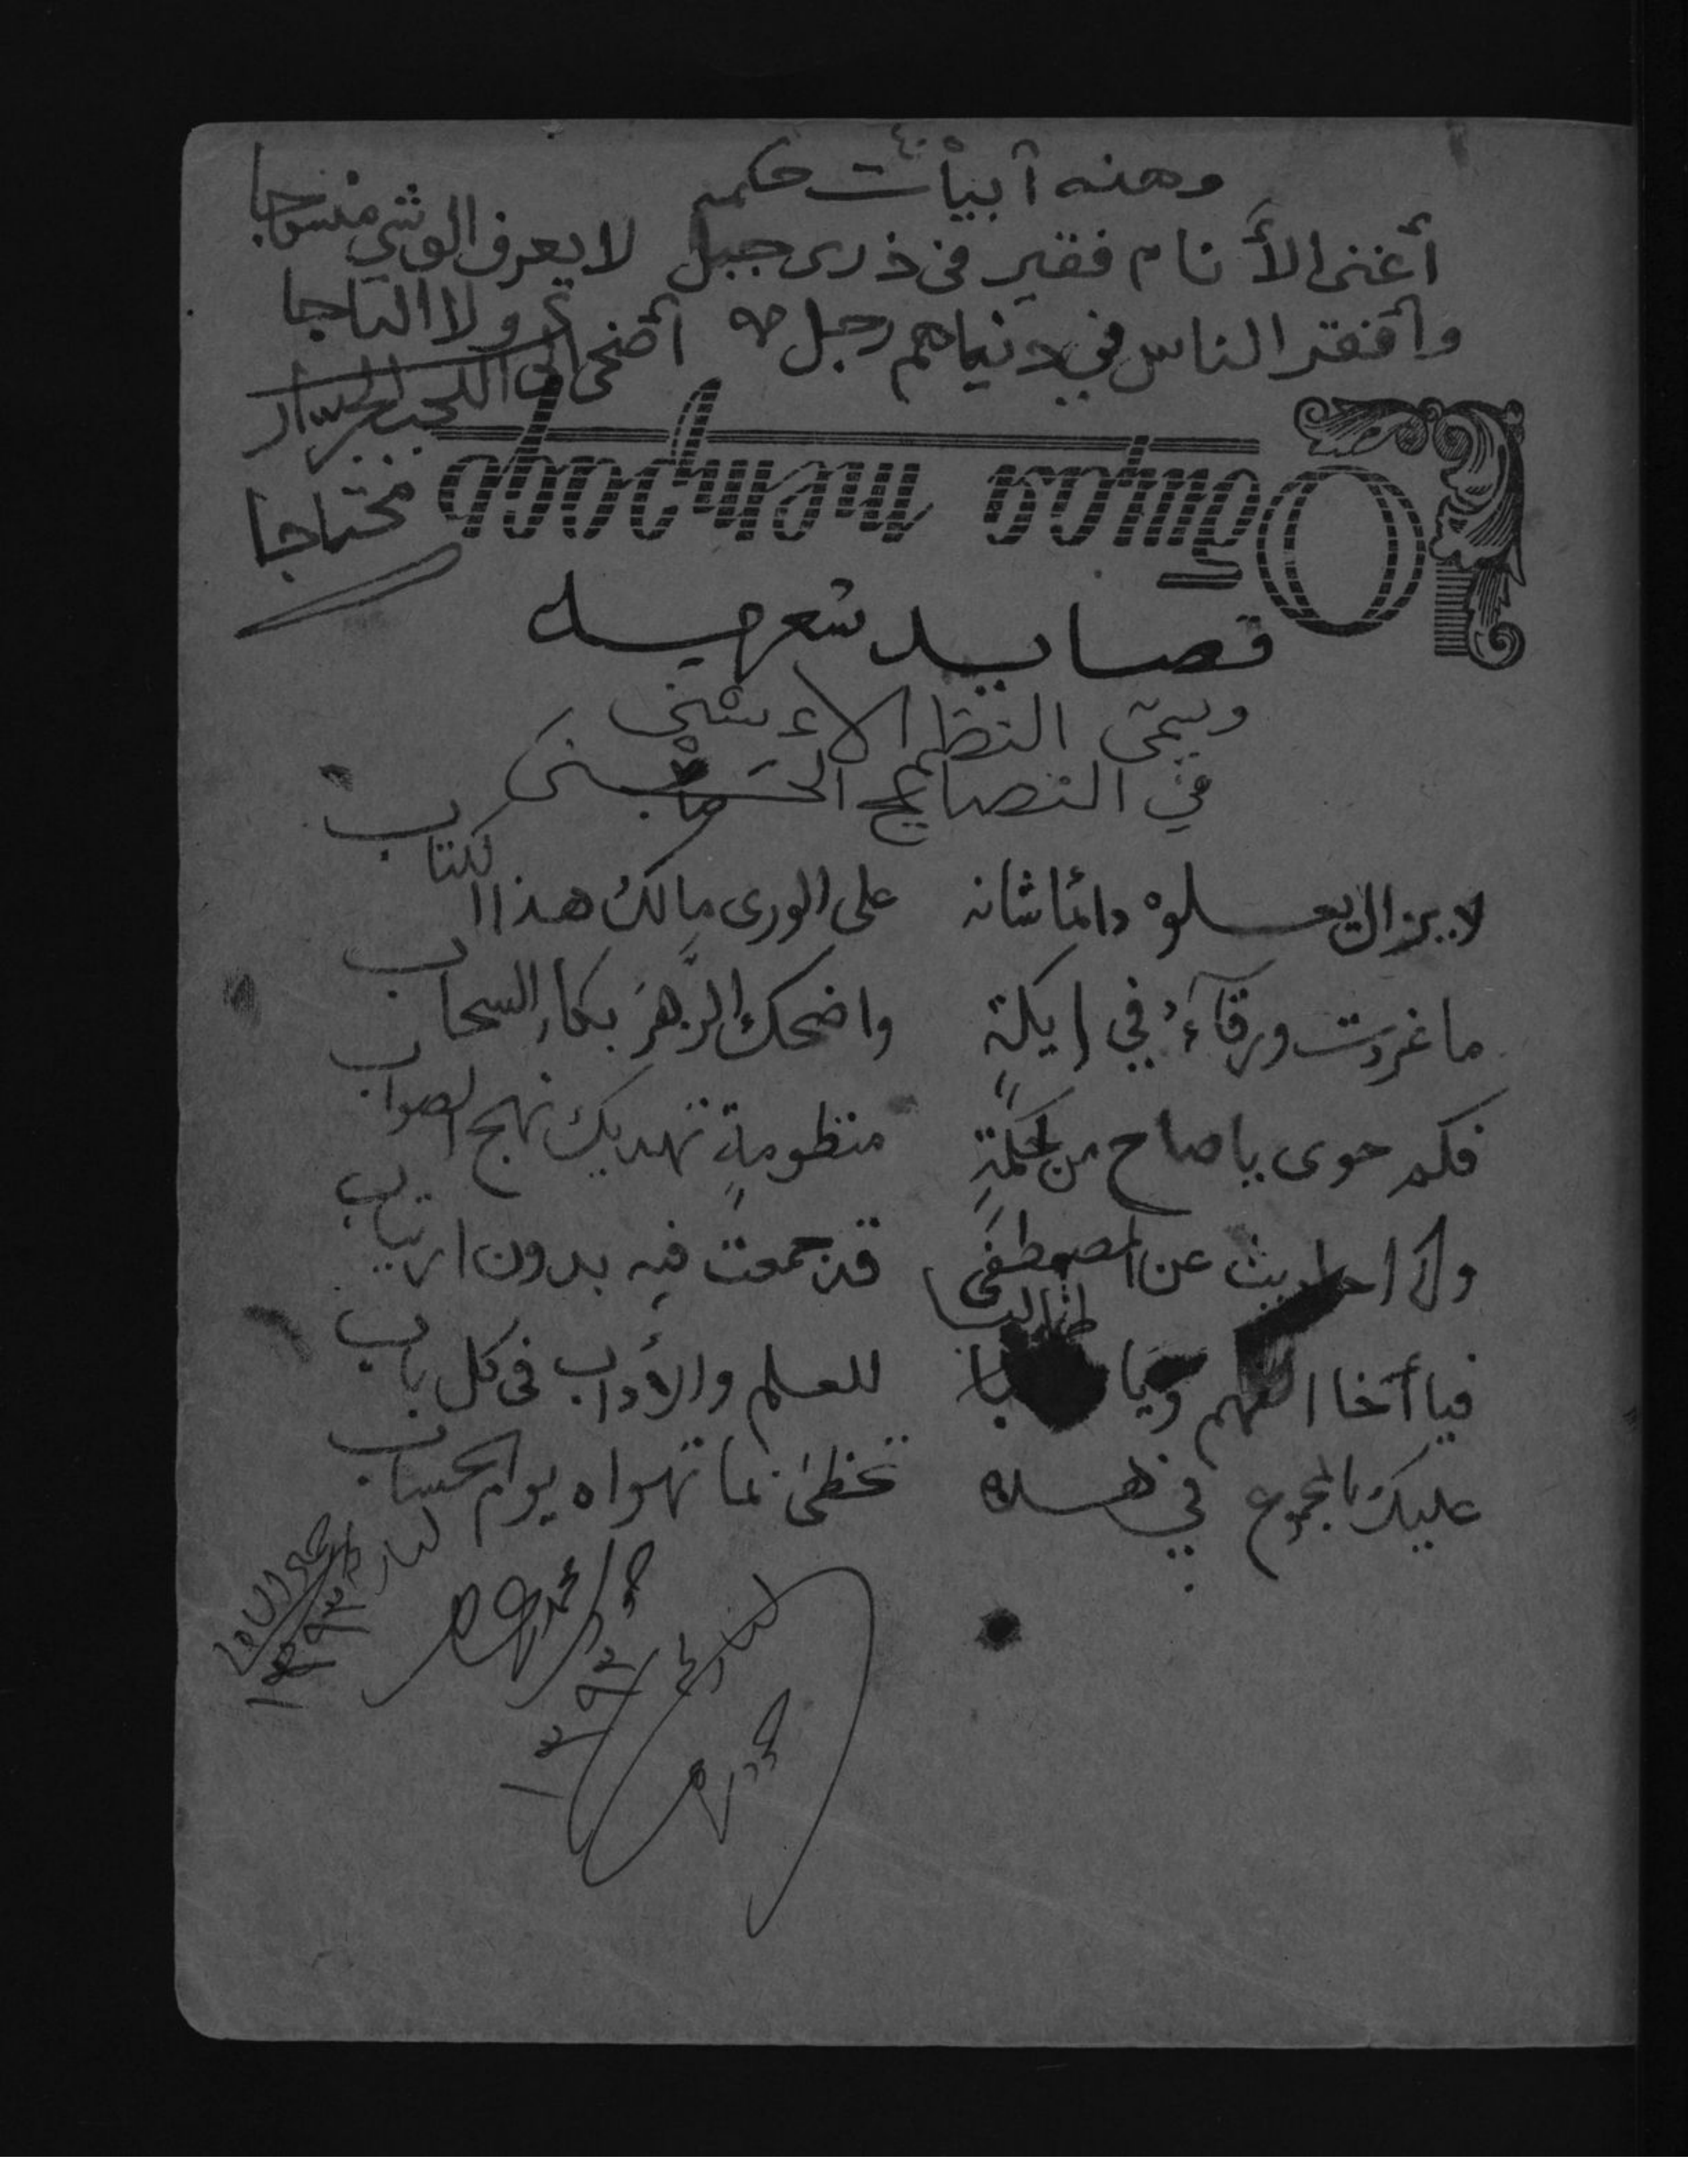 وهذه أبيات حكمه
أغنى الأنام فقير في ذرى جبل لا يعرف الوشي منسوجا
ولا التاجا
وأفقر الناس في دنياهم رجل أضحى إلى اللجب الجرار
محتاجا
Общая тетрадь
قصايد شعريه
ويسمى النظم الأسنى
في النصايح الحسنى
لا يزال يعلوه دائما شانه على الورى مالك هذا الكتاب
ما غردت ورقآء في ايكة واضحك الزهر بكاء السحاب
فكم حوى يا صاح من حكمة منظومة تهديك نهج الصواب
وكم احاديث عن المصطفى قد جمعت فيه بدون ارتياب
فيا أخا الفهم ويا طالبا للعلم والأداب في كل باب
عليك بالمجموع في هذه تحظى بما تهواه يوم الحساب
١٣٩٣
١٣٩٣